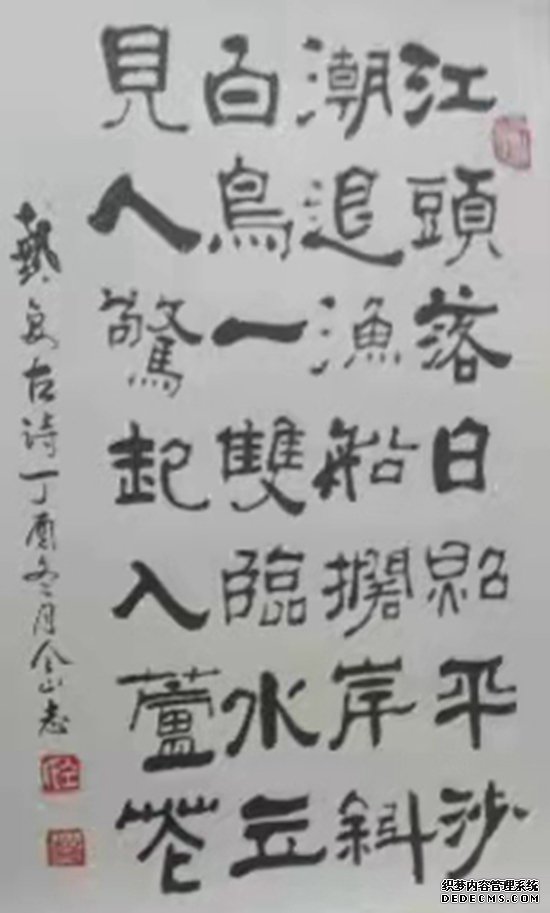 江頭落日照平沙
潮退漁船擱岸斜
百鳥一雙臨水立
見人驚起入蘆花
戴复古诗丁酉冬月山志
织梦内容管理系统
DEDECMS.COM